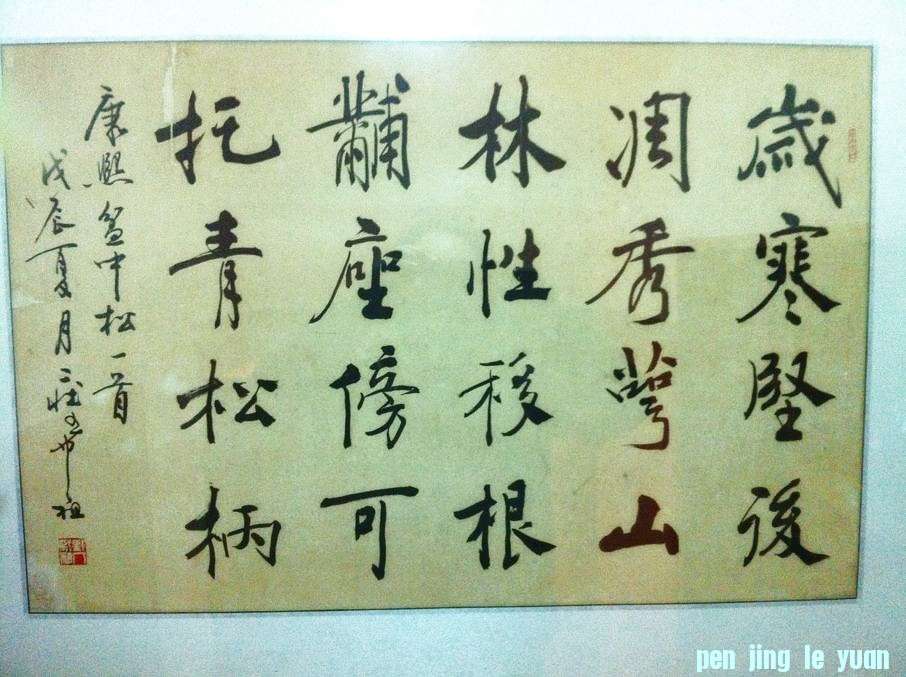 歲寒堅後
凋秀萼山
林性移根
黼座傍可
托青松柄
康熙盆中松一首
戊辰夏月
pen jing le yuan